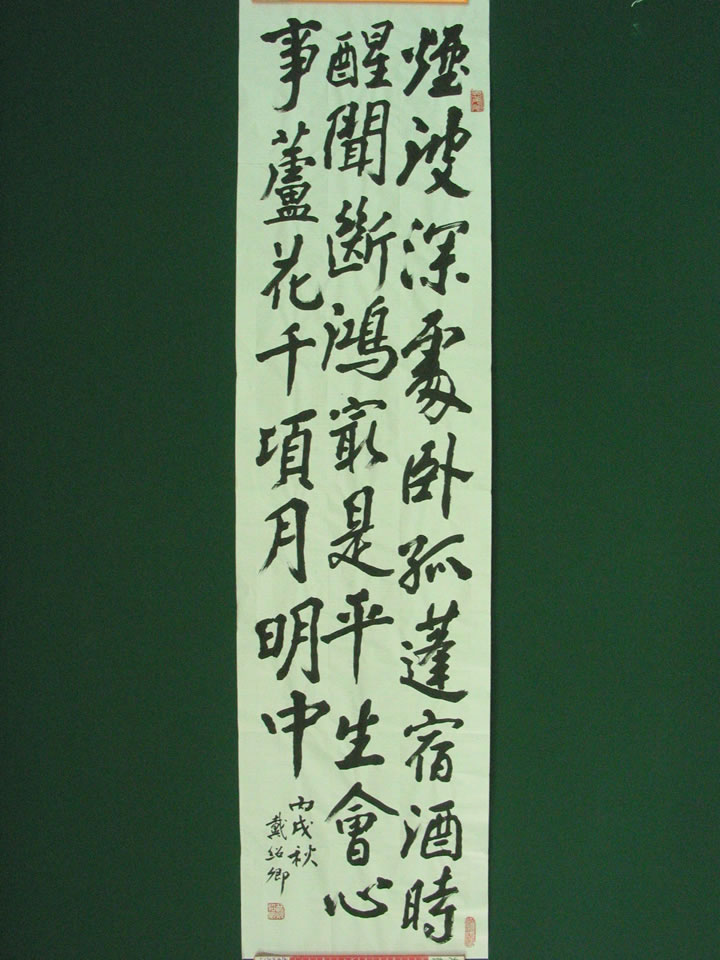 煙波深處卧孤蓬宿酒時
醒聞斷鴻最是平生會心
事蘆花千頃月明中
丙戌秋
戴紹卿